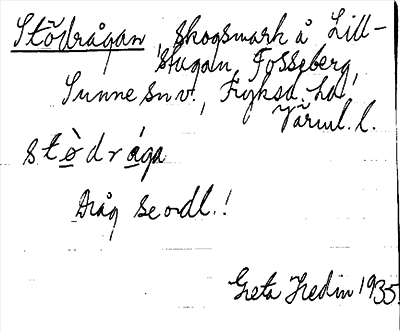 Stödrågan, skogsmark å Lill-
stugan, Fosseberg,
Sunne sn v., Fryksd. hd
Värml. l.
stòdrága
Dråg se ordl.!
Greta Hedin 1935.